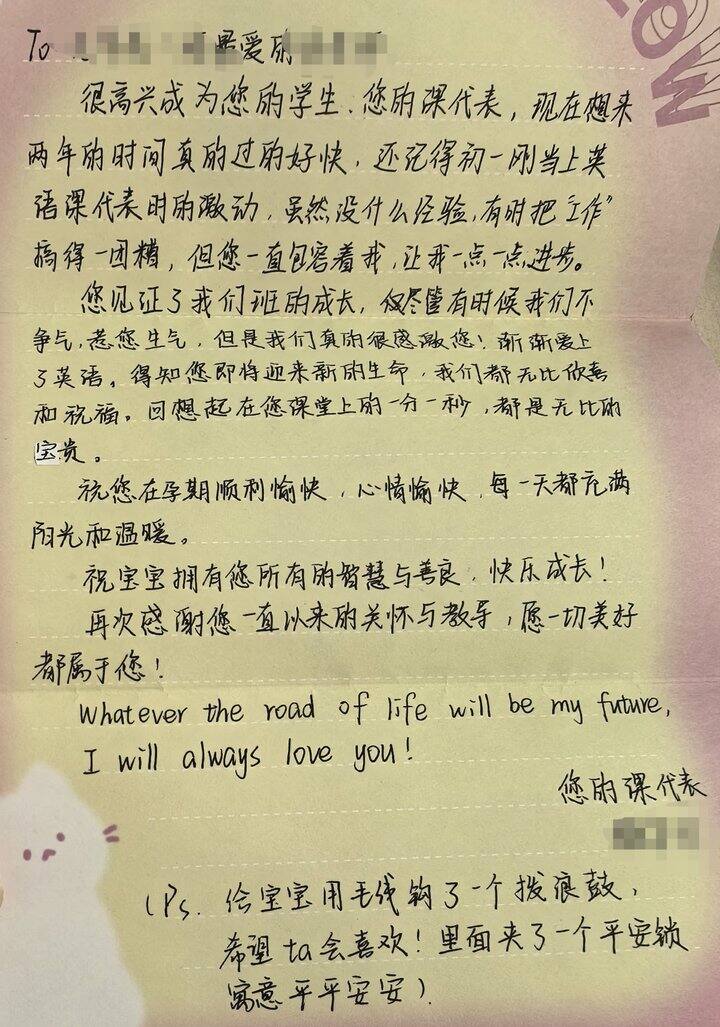 To 最爱的
很高兴成为您的学生、您的课代表，现在想来
两年的时间真的过的好快，还记得初一刚当上英
语课代表时的激动，虽然没什么经验，有时把“工作”
搞得一团糟，但您一直包容着我，让我一点一点进步。
您见证了我们班的成长，尽管有时候我们不
争气，惹您生气，但是我们真的很感激您！渐渐爱上
了英语。得知您即将迎来新的生命，我们都无比欣喜
和祝福。回想起在您课堂上的一分一秒，都是无比的
宝贵。
祝您在孕期顺利愉快，心情愉快，每一天都充满
阳光和温暖。
祝宝宝拥有您所有的智慧与善良，快乐成长！
再次感谢您一直以来的关怀与教导，愿一切美好
都属于您！
Whatever the road of life will be my future,
I will always love you!
您的课代表
（Ps. 给宝宝用毛线钩了一个拨浪鼓，
希望ta会喜欢！里面夹了一个平安锁
寓意平平安安）.